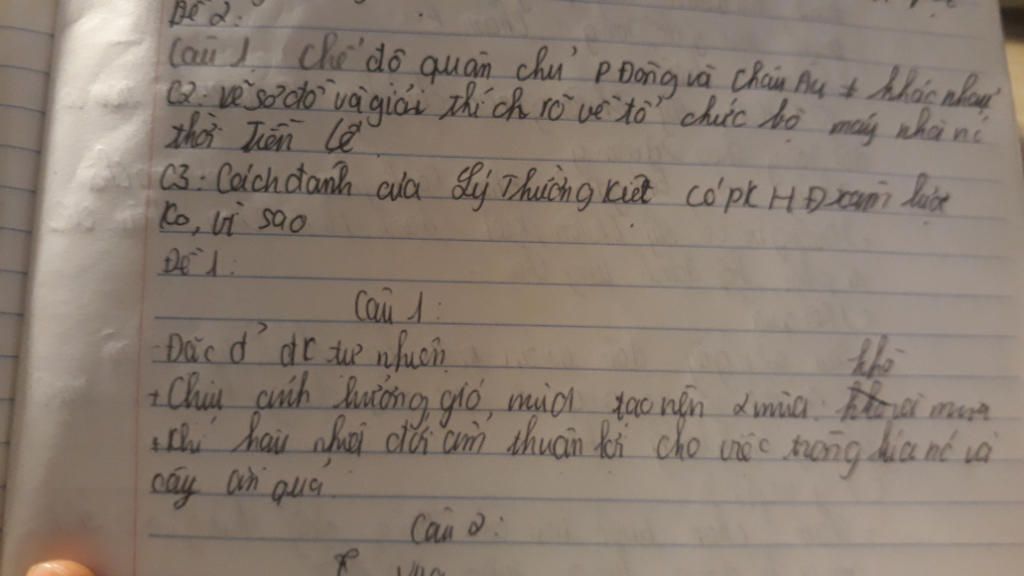 Đề 2:
Câu 1: Chế độ quân chủ P Đông và Châu Âu + khác nhau
C2: vẽ sơ đồ và giải thích rõ về tổ chức bộ máy nhà nc
thời Tiền Lê
C3: Cách đánh của Lý Thường Kiệt có pk HĐ xâm lược
ko, vì sao
Đề 1:
Câu 1:
Đặc đ' đk tự nhiên
khô
+ Chịu ảnh hưởng gió, mùa tạo nên 2 mùa: và mưa
+ khí hậu nhiệt đới ẩm thuận lợi cho việc trồng lúa nc và
cây ăn quả.
Câu 2: